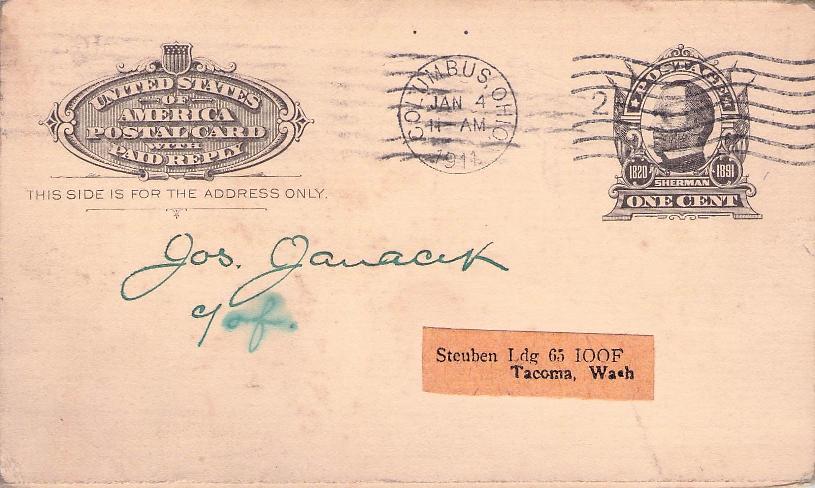 UNITED STATES
OF
AMERICA
POSTAL CARD
WITH
PAID REPLY
THIS SIDE IS FOR THE ADDRESS ONLY.
COLUMBUS, OHIO
JAN 4
11 AM
1911
2
POSTAGE
1820 1891
SHERMAN
ONE CENT
Jos. Janacek
c/of.
Steuben Ldg 65 IOOF
Tacoma, Wash